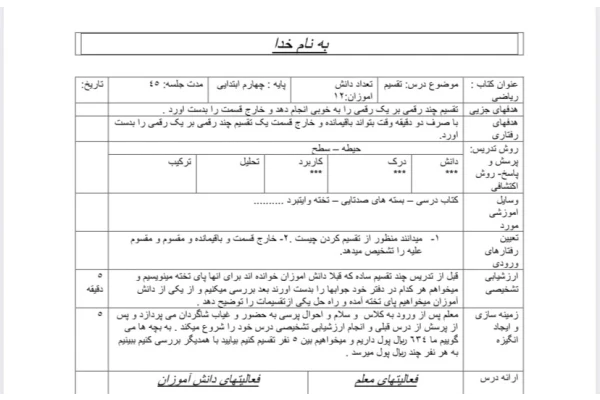 به نام خدا
عنوان کتاب : ریاضی موضوع درس: تقسیم تعداد دانش آموزان:۱۲ پایه : چهارم ابتدایی مدت جلسه: ۴۵ تاریخ:
هدفهای جزیی تقسیم چند رقمی بر یک رقمی را به خوبی انجام دهد و خارج قسمت را بدست اورد .
هدفهای رفتاری با صرف دو دقیقه وقت بتواند باقیمانده و خارج قسمت یک تقسیم چند رقمی بر یک رقمی را بدست اورد.
روش تدریس: پرسش و پاسخ- روش اکتشافی
حیطه – سطح
دانش درک کاربرد تحلیل ترکیب
*** *** ***
وسایل اموزشی مورد
کتاب درسی – بسته های صدتایی – تخته وایتبرد ..........
تعیین رفتارهای ورودی
۱- میدانند منظور از تقسیم کردن چیست .۲- خارج قسمت و باقیمانده و مقسوم و مقسوم
علیه را تشخیص میدهد.
ارزشیابی تشخیصی
قبل از تدریس چند تقسیم ساده که قبلا دانش اموزان خوانده اند برای انها پای تخته مینویسیم و
میخواهم هر کدام در دفتر خود جوابها را بدست اورند بعد بررسی میکنیم و از یکی از دانش
آموزان میخواهیم پای تخته آمده و راه حل یکی ازتقسیمات را توضیح دهد .
۵ دقیقه
زمینه سازی و ایجاد انگیزه
معلم پس از ورود به کلاس و سلام و احوال پرسی به حضور و غیاب شاگردان می پردازد و پس
از پرسش از درس قبلی و انجام ارزشیابی تشخیصی درس خود را شروع میکند . به بچه ها می
گوییم ما ۶۳۴ ریال پول داریم و میخواهیم بین ۵ نفر تقسیم کنیم بیایید با همدیگر بررسی کنیم ببینیم
به هر نفر چند ریال پول میرسد .
۵
ارائه درس فعالیتهای معلم فعالیتهای دانش آموزان